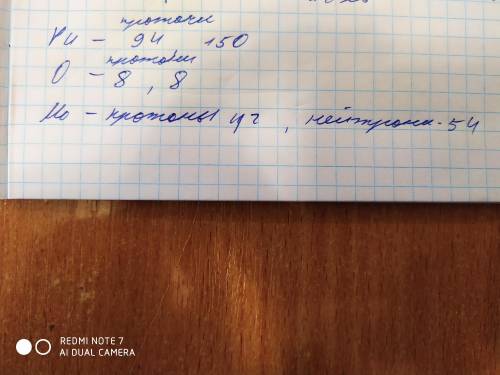 протоны
Pu - 94 150
протоны
O - 8, 8
Mo - протоны 42, нейтроны - 54
REDMI NOTE 7
AI DUAL CAMERA